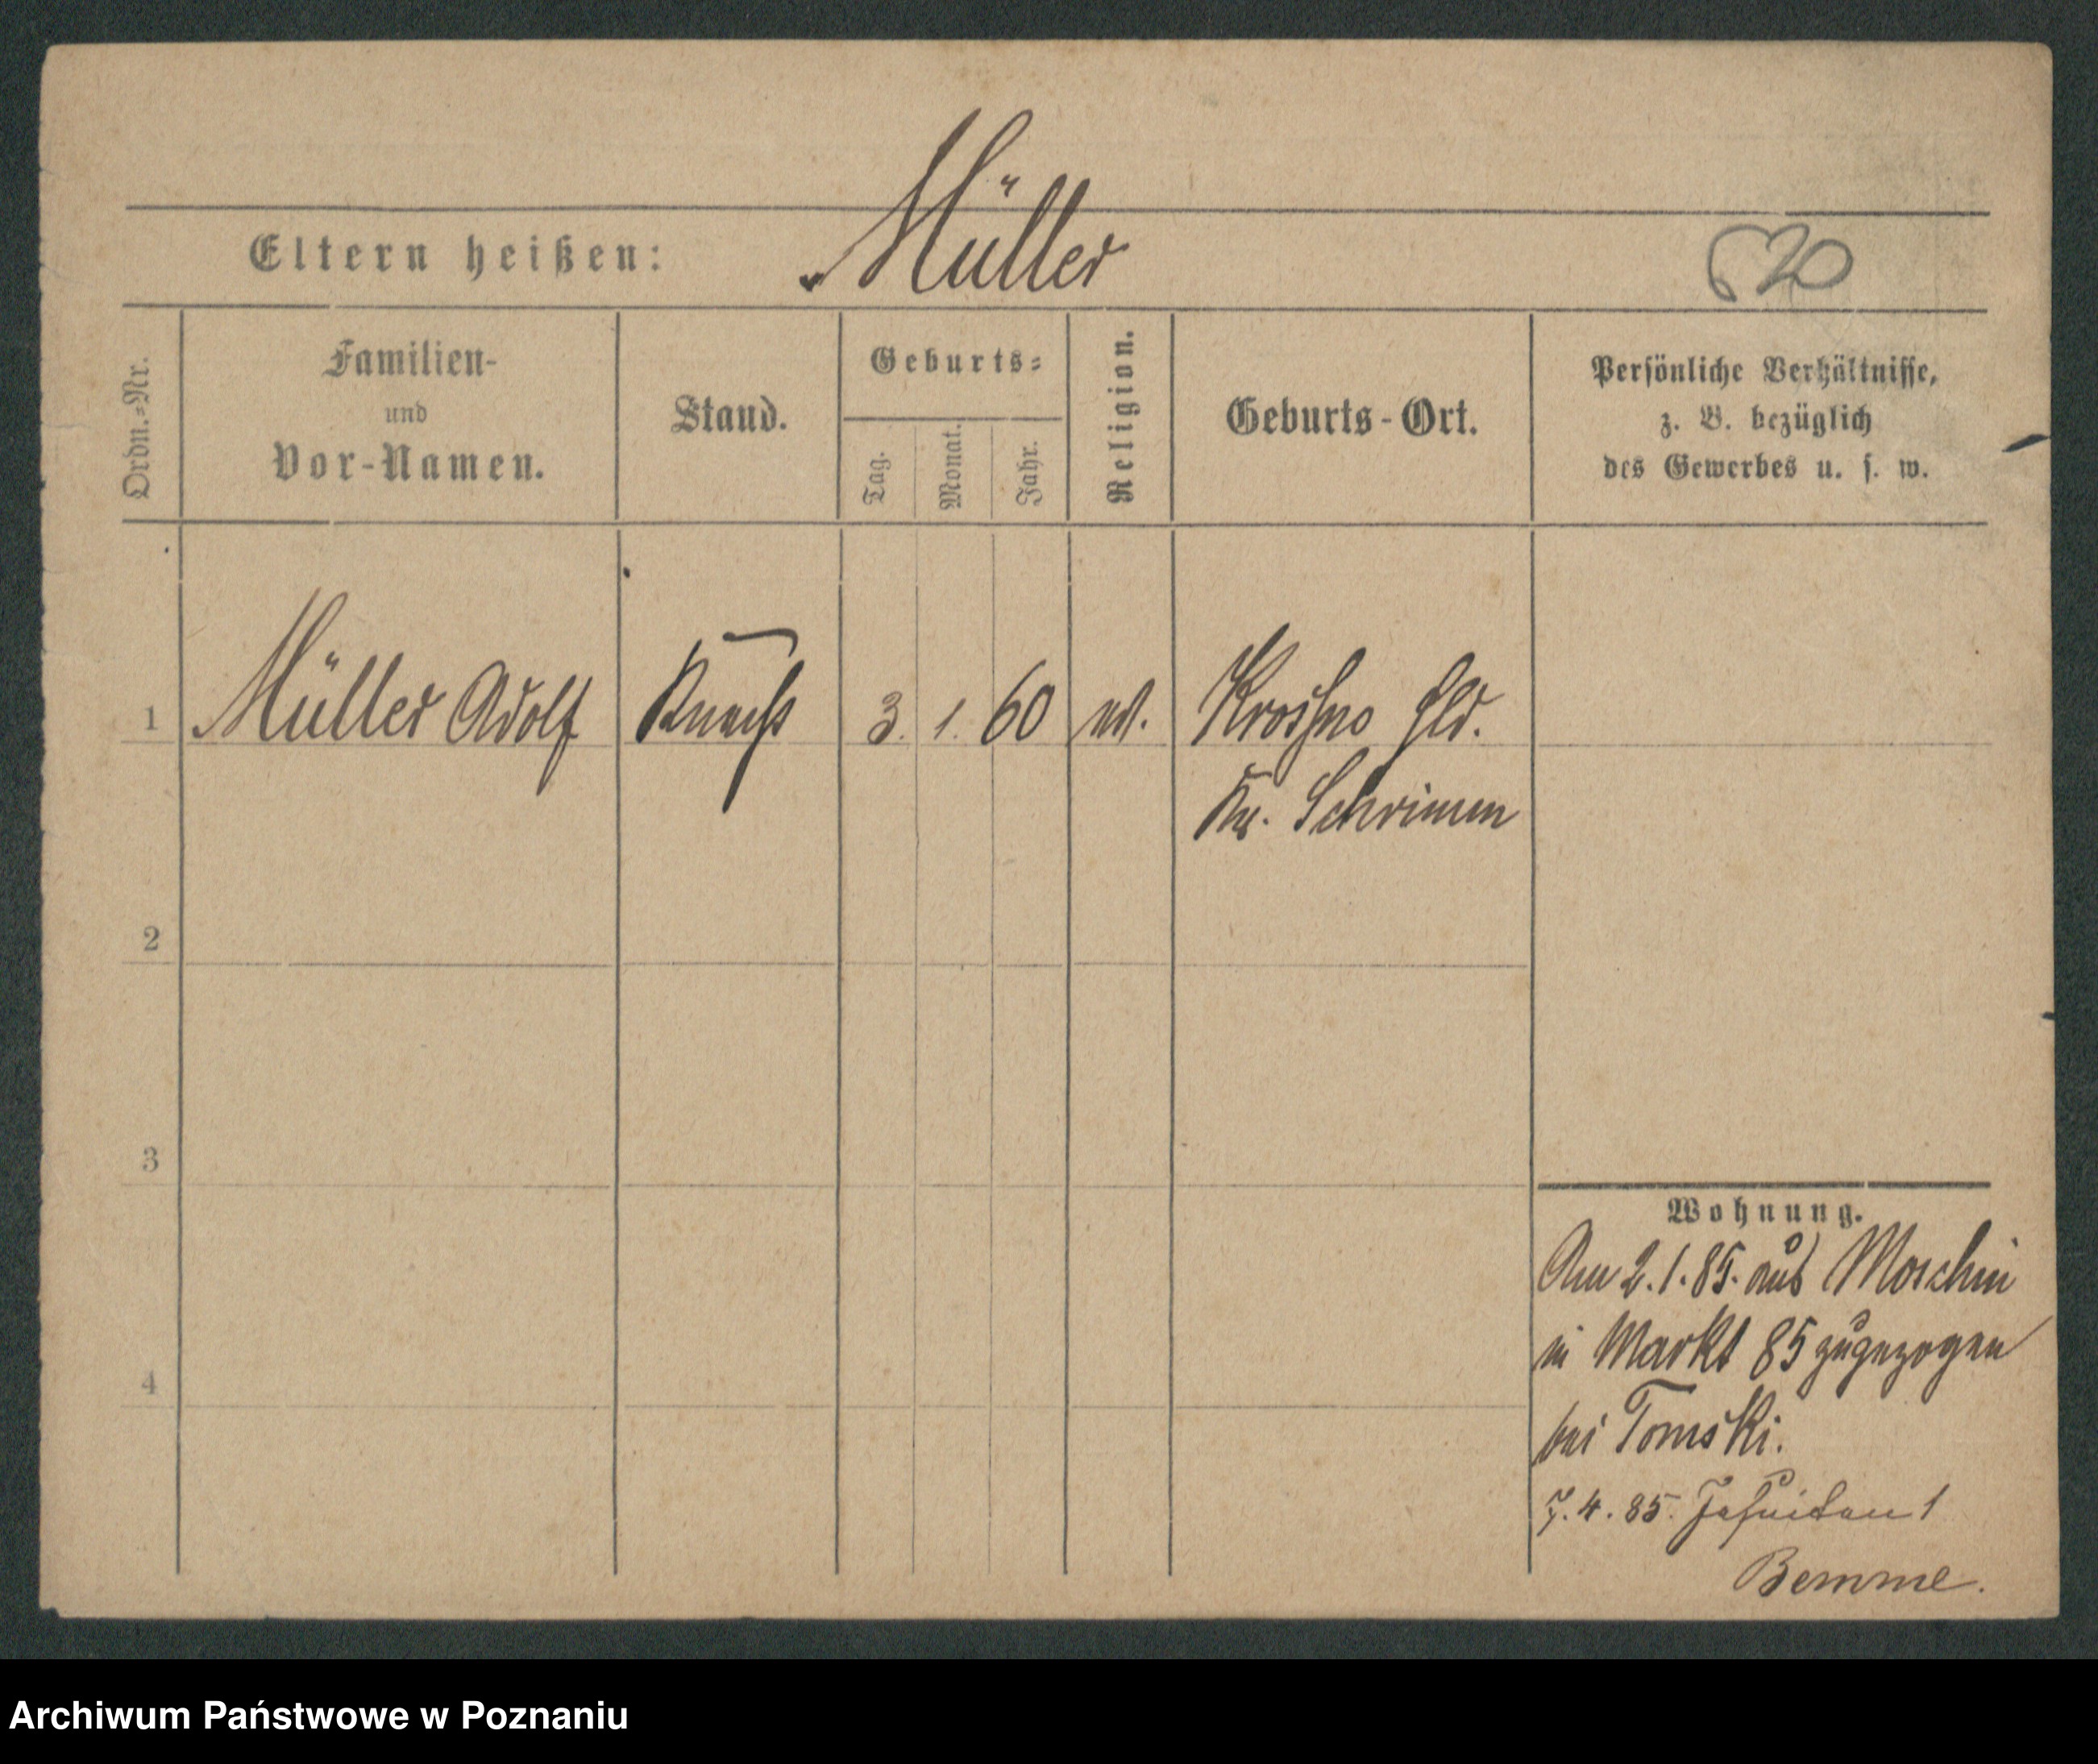 Müller
Eltern heißen:
620
Ordn.=Nr.
Familien-
und
Vor-Namen.
Stand.
Geburts=
Tag.
Monat.
Jahr.
Religion.
Geburts-Ort.
Persönliche Verhältnisse,
z. B. bezüglich
des Gewerbes u. s. w.
1 Müller Adolf Knecht 3. 1. 60 Krosno Hld.
Kr. Schrimm
2
3
4
Wohnung.
Am 2.1.85. aus Moschin
in Markt 85 zugezogen
bei Tomski.
7.4.85. Jesuiten 1
Bemme.
Archiwum Państwowe w Poznaniu